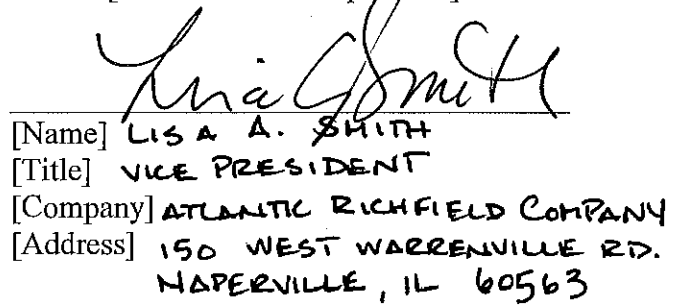 Lisa A Smith
[Name] LISA A. SMITH
[Title] VICE PRESIDENT
[Company] ATLANTIC RICHFIELD COMPANY
[Address] 150 WEST WARRENVILLE RD.
NAPERVILLE, IL 60563